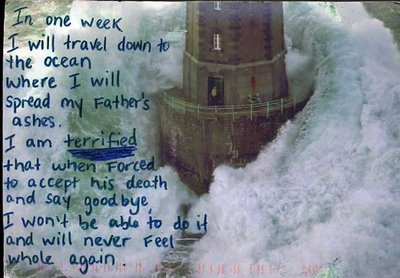 In one week
I will travel down to
the ocean
where I will
spread my Father's
ashes.
I am terrified
that when forced
to accept his death
and say goodbye,
I won't be able to do it
and will never feel
whole again.